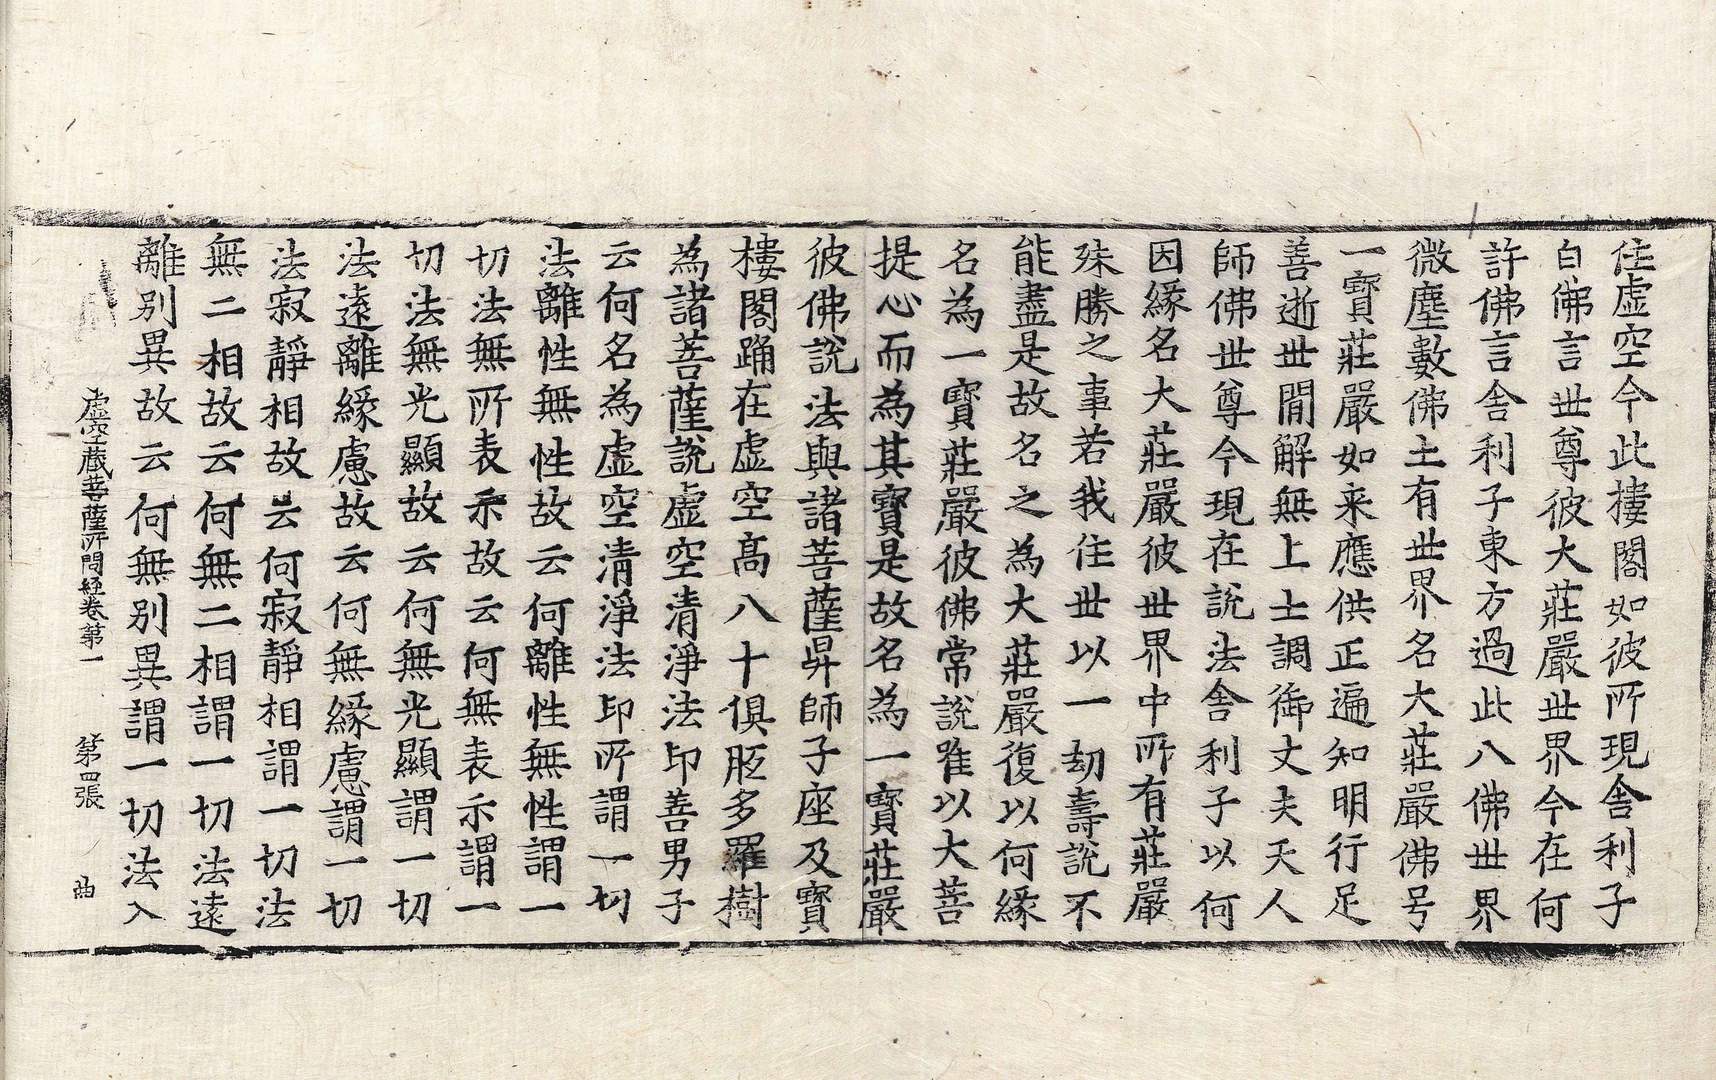 住虛空今此樓閣如彼所現舍利子
白佛言世尊彼大莊嚴世界今在何
許佛言舍利子東方過此八佛世界
微塵數佛土有世界名大莊嚴佛号
一寶莊嚴如来應供正遍知明行足
善逝世閒解無上士調御丈夫天人
師佛世尊今現在說法舍利子以何
因緣名大莊嚴彼世界中所有莊嚴
殊勝之事若我住世以一劫壽說不
能盡是故名之為大莊嚴復以何緣
名為一寶莊嚴彼佛常說唯以大菩
提心而為其寶是故名為一寶莊嚴
彼佛說法與諸菩薩昇師子座及寶
樓閣踊在虛空髙八十俱胝多羅樹
為諸菩薩說虛空清淨法印善男子
云何名為虛空清淨法印所謂一切
法離性無性故云何離性無性謂一
切法無所表示故云何無表示謂一
切法無光顯故云何無光顯謂一切
法遠離緣慮故云何無緣慮謂一切
法寂靜相故云何寂靜相謂一切法
無二相故云何無二相謂一切法遠
離别異故云何無别異謂一切法入
虛空藏菩薩所問經卷第一 第四張 曲